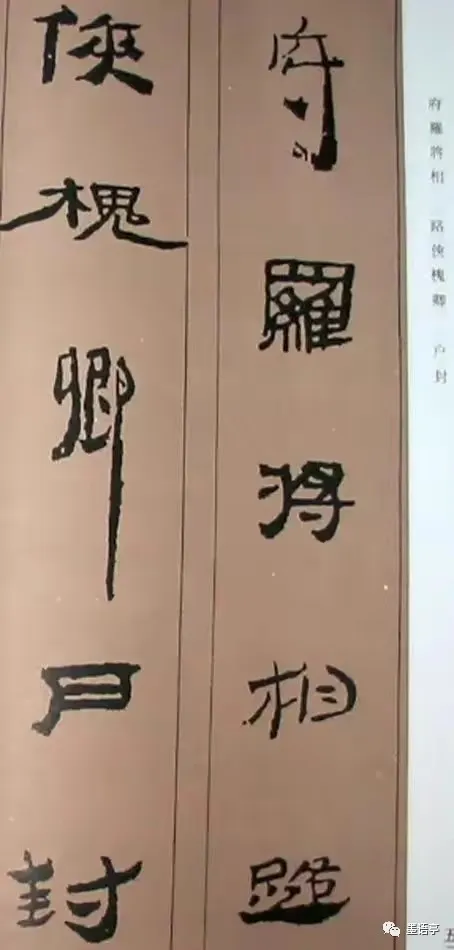 府羅将相路
俠槐卿户封
府羅將相 路俠槐卿 户封
五
墨语亭